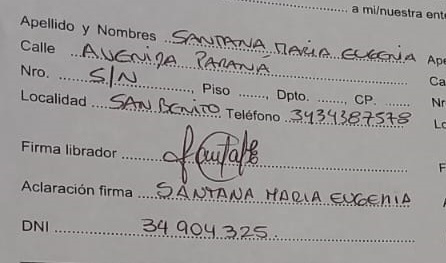 a mi/nuestra ent
Apellido y Nombres SANTANA MARIA EUGENIA Ape
Calle AVENIDA PARANÁ Ca
Nro. S/N, Piso ......, Dpto. ......, CP. ...... Nr
Localidad SAN BENITO Teléfono 3434387578 Lo
Firma librador F
Aclaración firma SANTANA MARIA EUGENIA
DNI 34 904 325